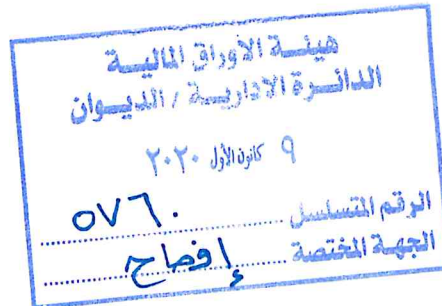 هيئة الأوراق المالية
الدائرة الادارية / الديوان
٩ كانون الأول ٢٠٢٠
الرقم المتسلسل ٥٧٦٠
الجهة المختصة إفصاح